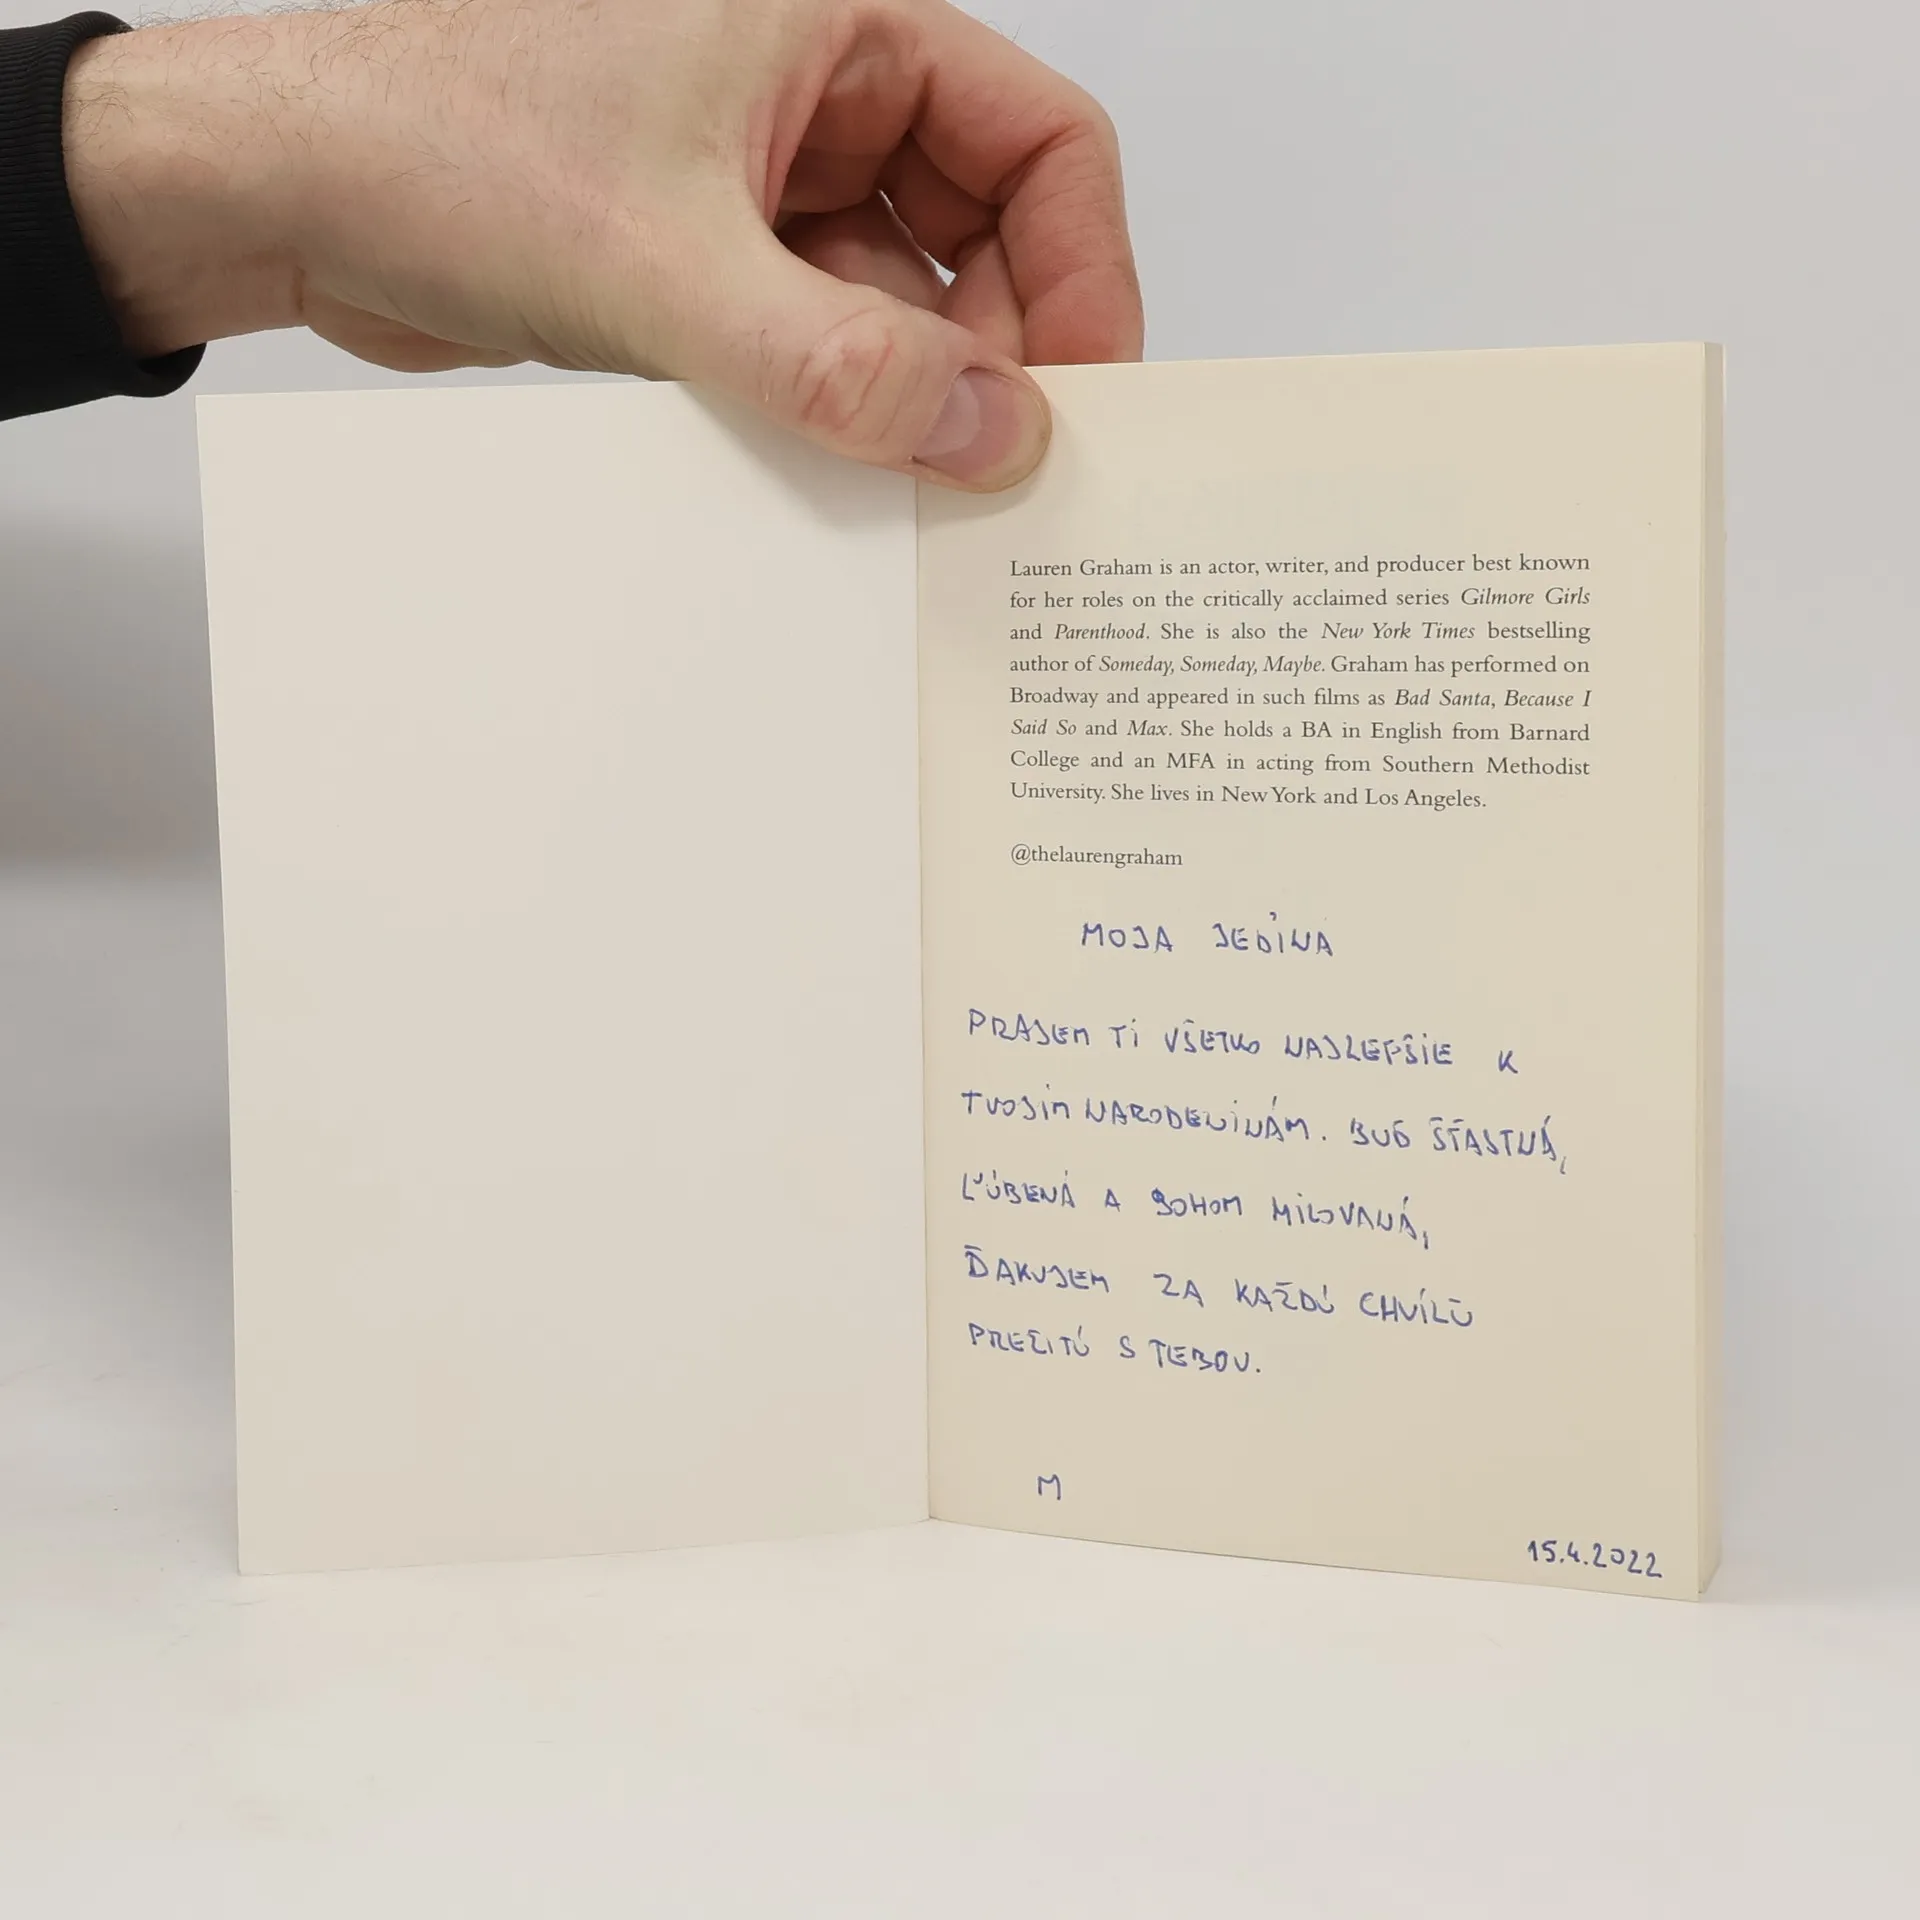 Lauren Graham is an actor, writer, and producer best known
for her roles on the critically acclaimed series Gilmore Girls
and Parenthood. She is also the New York Times bestselling
author of Someday, Someday, Maybe. Graham has performed on
Broadway and appeared in such films as Bad Santa, Because I
Said So and Max. She holds a BA in English from Barnard
College and an MFA in acting from Southern Methodist
University. She lives in New York and Los Angeles.
@thelaurengraham
MOJA JEDINÁ
PRAJEM TI VŠETKO NAJLEPŠIE K
TVOJIM NARODENINÁM. BUĎ ŠŤASTNÁ,
ĽÚBENÁ A BOHOM MILOVANÁ,
ĎAKUJEM ZA KAŽDÚ CHVÍĽU
PREŽITÚ S TEBOU.
M
15.4.2022